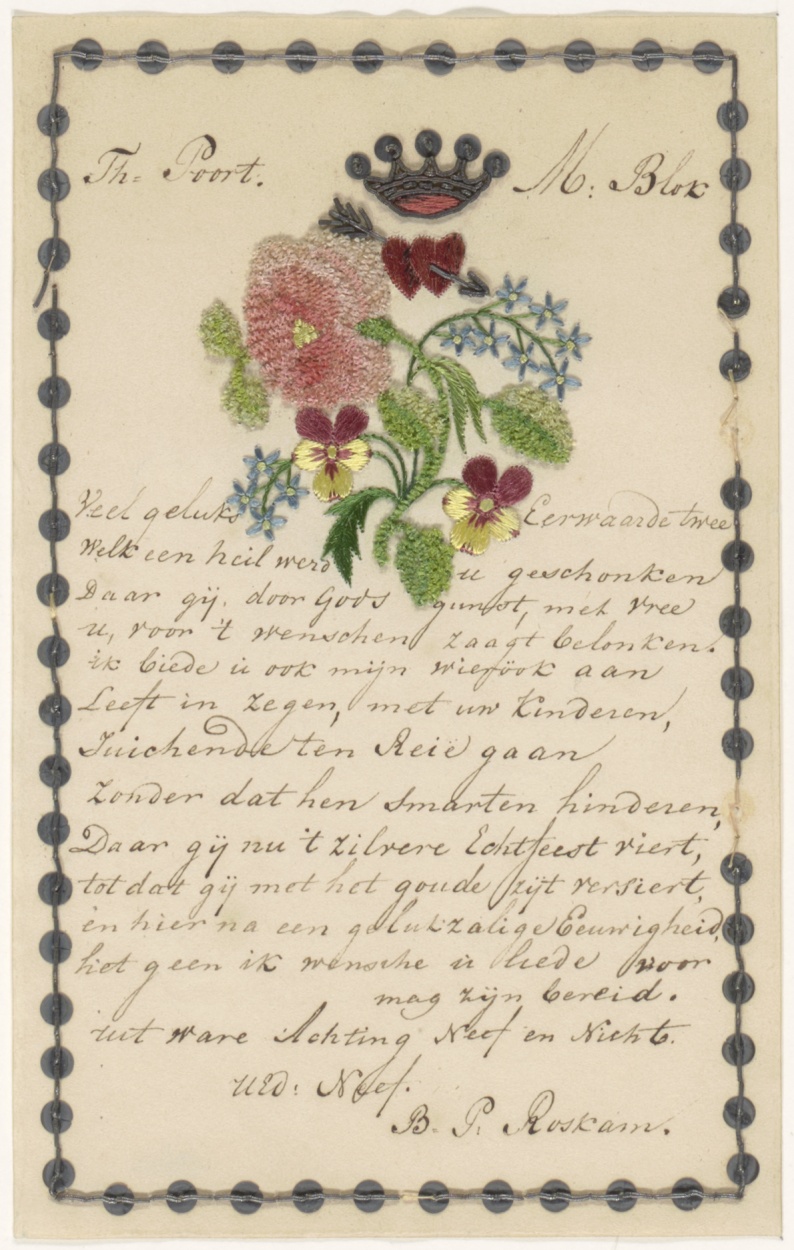 Th= Poort. M: Blok
Veel geluks Eerwaarde twee
Welk een heil werd u geschonken
Daar gij, door Gods gunst, met vree
u, voor 't wenschen zaagt belonken.
ik biede u ook mijn wierook aan
Leeft in zegen, met uw Kinderen,
Juichende ten Reië gaan
zonder dat hen smarten hinderen,
Daar gij nu 't zilvere Echtfeest viert,
tot dat gij met het goude zijt versiert,
en hier na een gelukzalige Eeuwigheid,
het geen ik wensche u liede voor
mag zijn bereid.
uit ware Achting Neef en Nicht.
UEd: Neef.
B. P. Roskam.